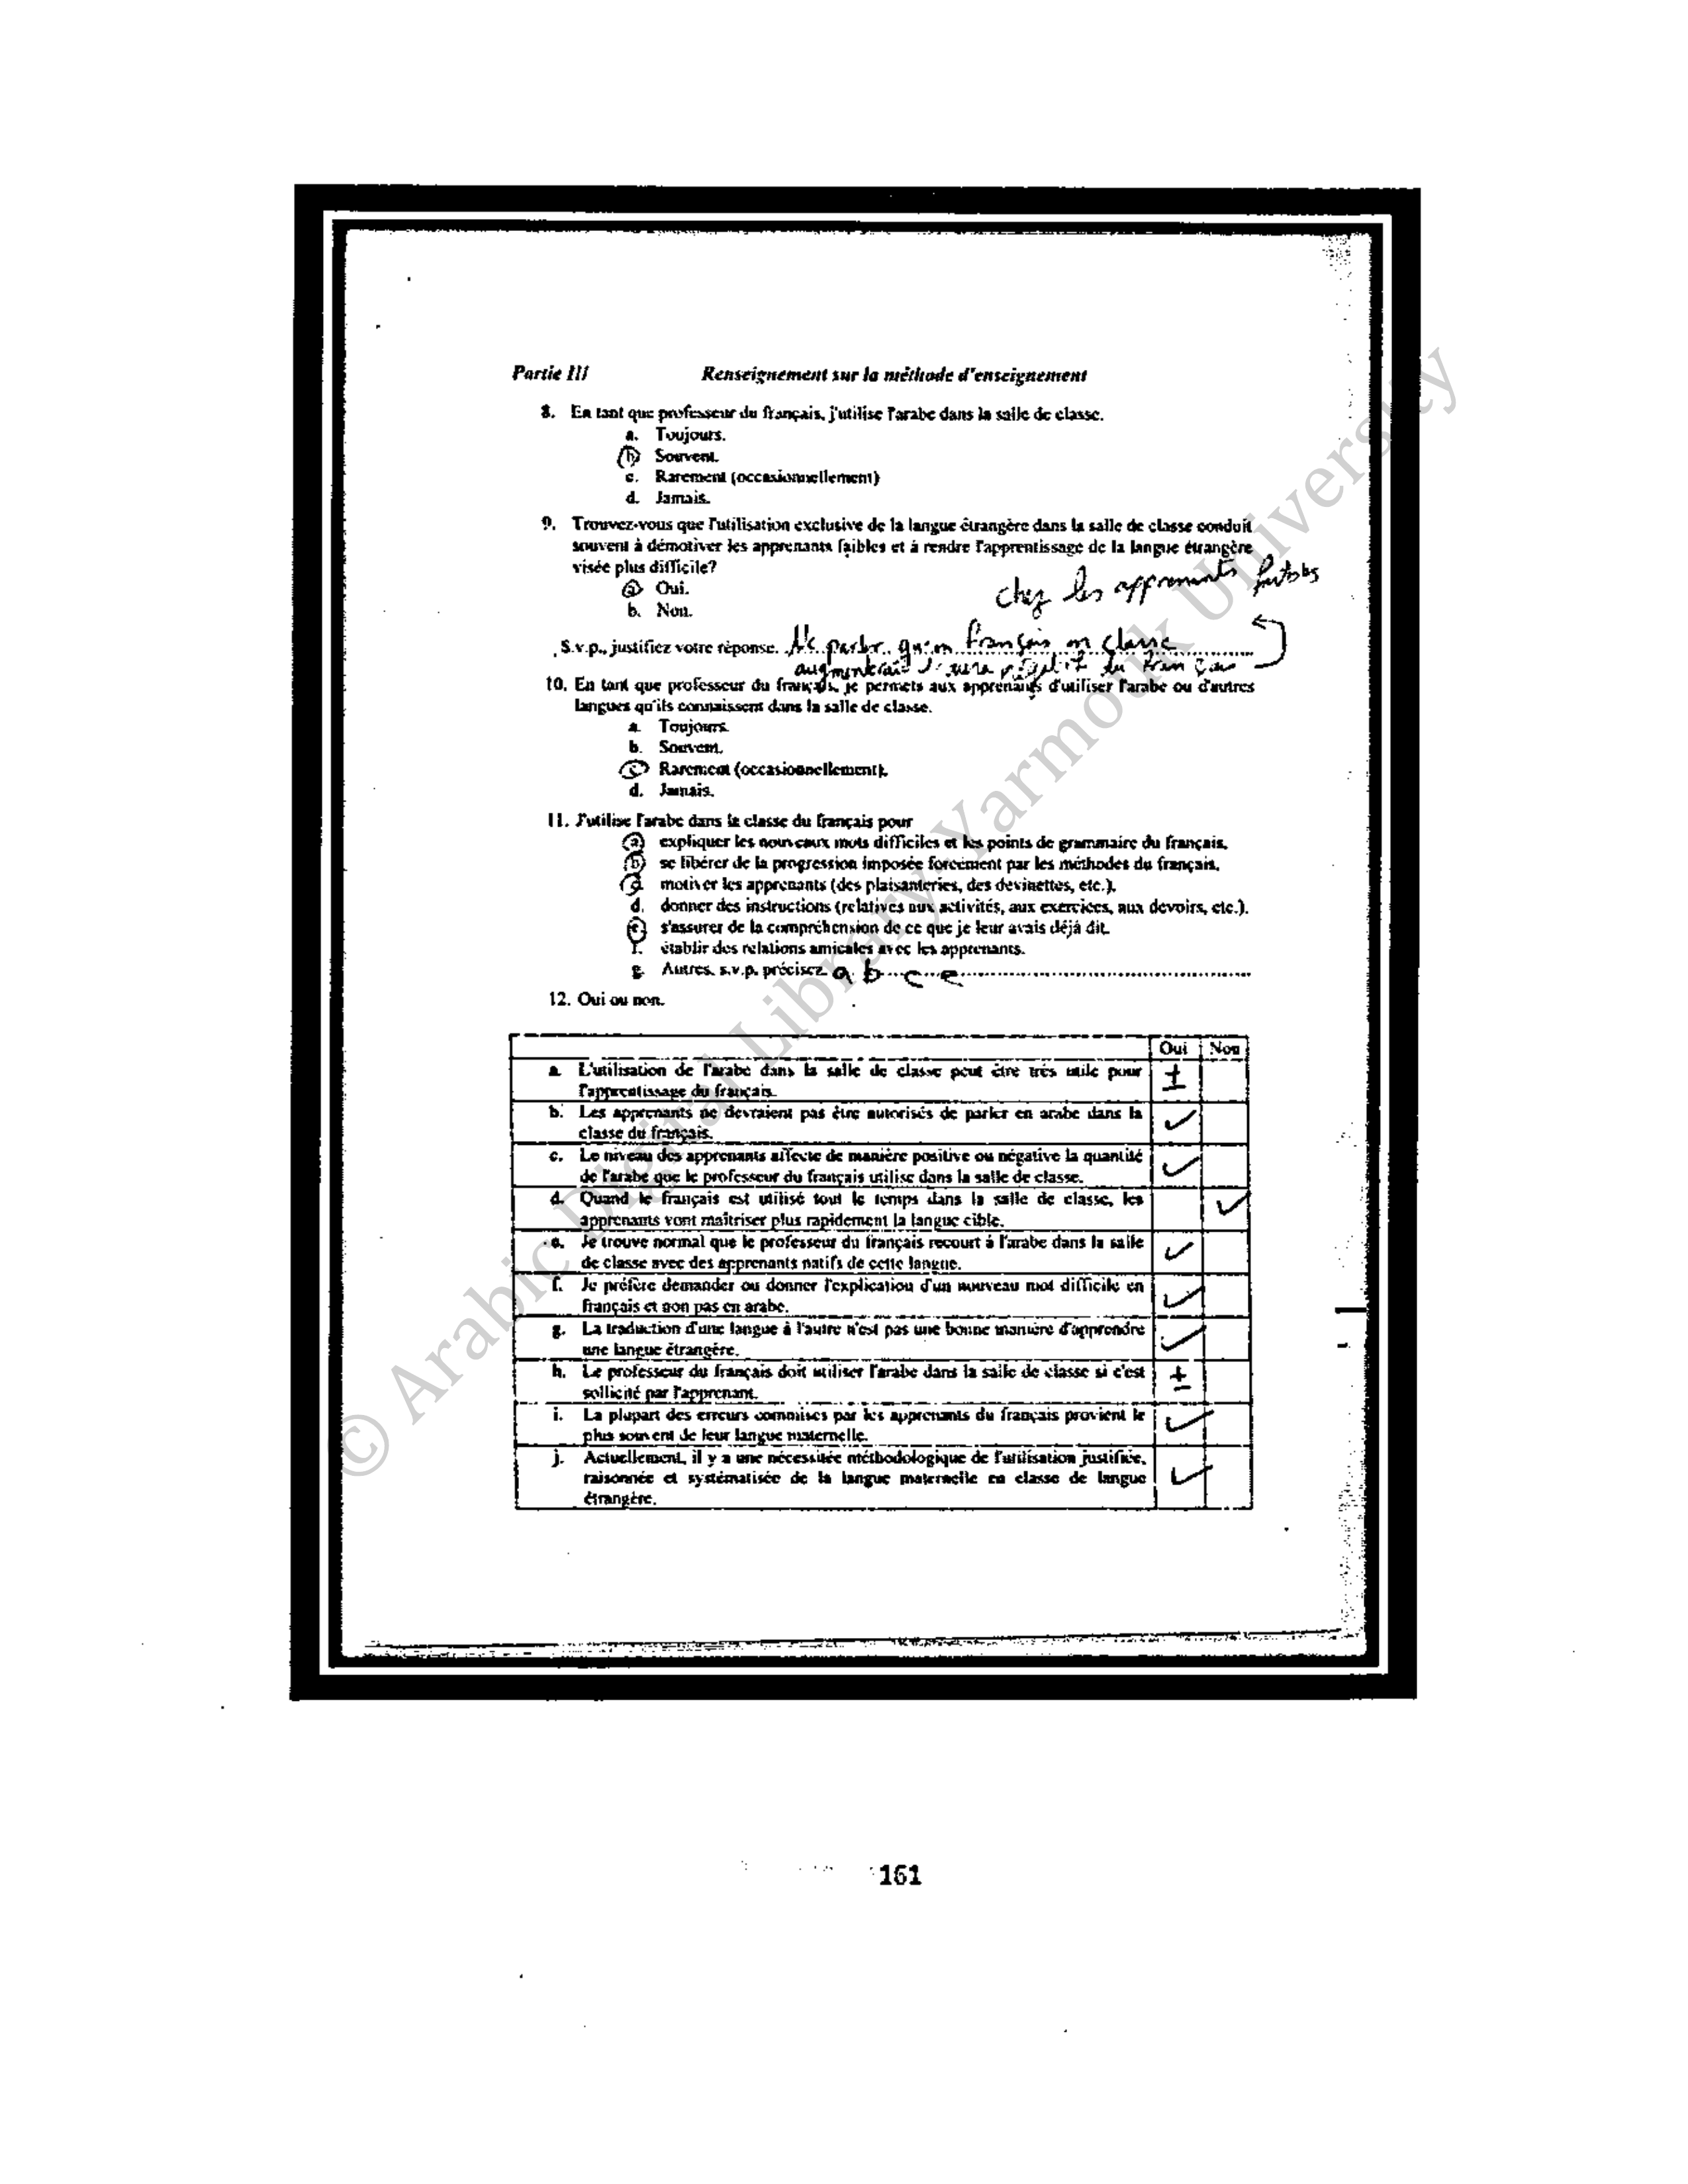 Partie III Renseignement sur la méthode d'enseignement
8. En tant que professeur du français, j'utilise l'arabe dans la salle de classe.
a. Toujours.
b. Souvent.
c. Rarement (occasionnellement)
d. Jamais.
9. Trouvez-vous que l'utilisation exclusive de la langue étrangère dans la salle de classe conduit
souvent à démotiver les apprenants faibles et à rendre l'apprentissage de la langue étrangère
visée plus difficile?
a. Oui.
b. Non.
chez les apprenants
S.v.p., justifiez votre réponse. Ne parler qu'en français en classe
augmenterait du français
10. En tant que professeur du français, je permets aux apprenants d'utiliser l'arabe ou d'autres
langues qu'ils connaissent dans la salle de classe.
a. Toujours.
b. Souvent.
c. Rarement (occasionnellement).
d. Jamais.
11. J'utilise l'arabe dans la classe du français pour
a. expliquer les nouveaux mots difficiles et les points de grammaire du français.
b. se libérer de la progression imposée forcément par les méthodes du français.
c. motiver les apprenants (des plaisanteries, des devinettes, etc.).
d. donner des instructions (relatives aux activités, aux exercices, aux devoirs, etc.).
e. s'assurer de la compréhension de ce que je leur avais déjà dit.
f. établir des relations amicales avec les apprenants.
g. Autres, s.v.p. précisez. a b c e
12. Oui ou non.
Oui Non
a. L'utilisation de l'arabe dans la salle de classe peut être très utile pour ±
l'apprentissage du français.
b. Les apprenants ne devraient pas être autorisés de parler en arabe dans la ✓
classe du français.
c. Le niveau des apprenants affecte de manière positive ou négative la quantité ✓
de l'arabe que le professeur du français utilise dans la salle de classe.
d. Quand le français est utilisé tout le temps dans la salle de classe, les ✓
apprenants vont maîtriser plus rapidement la langue cible.
e. Je trouve normal que le professeur du français recourt à l'arabe dans la salle ✓
de classe avec des apprenants natifs de cette langue.
f. Je préfère demander ou donner l'explication d'un nouveau mot difficile en ✓
français et non pas en arabe.
g. La traduction d'une langue à l'autre n'est pas une bonne manière d'apprendre ✓
une langue étrangère.
h. Le professeur du français doit utiliser l'arabe dans la salle de classe si c'est ±
sollicité par l'apprenant.
i. La plupart des erreurs commises par les apprenants du français provient le ✓
plus souvent de leur langue maternelle.
j. Actuellement, il y a une nécessitée méthodologique de l'utilisation justifiée, ✓
raisonnée et systématisée de la langue maternelle en classe de langue
étrangère.
161
© Arabic Digital Library-Yarmouk University